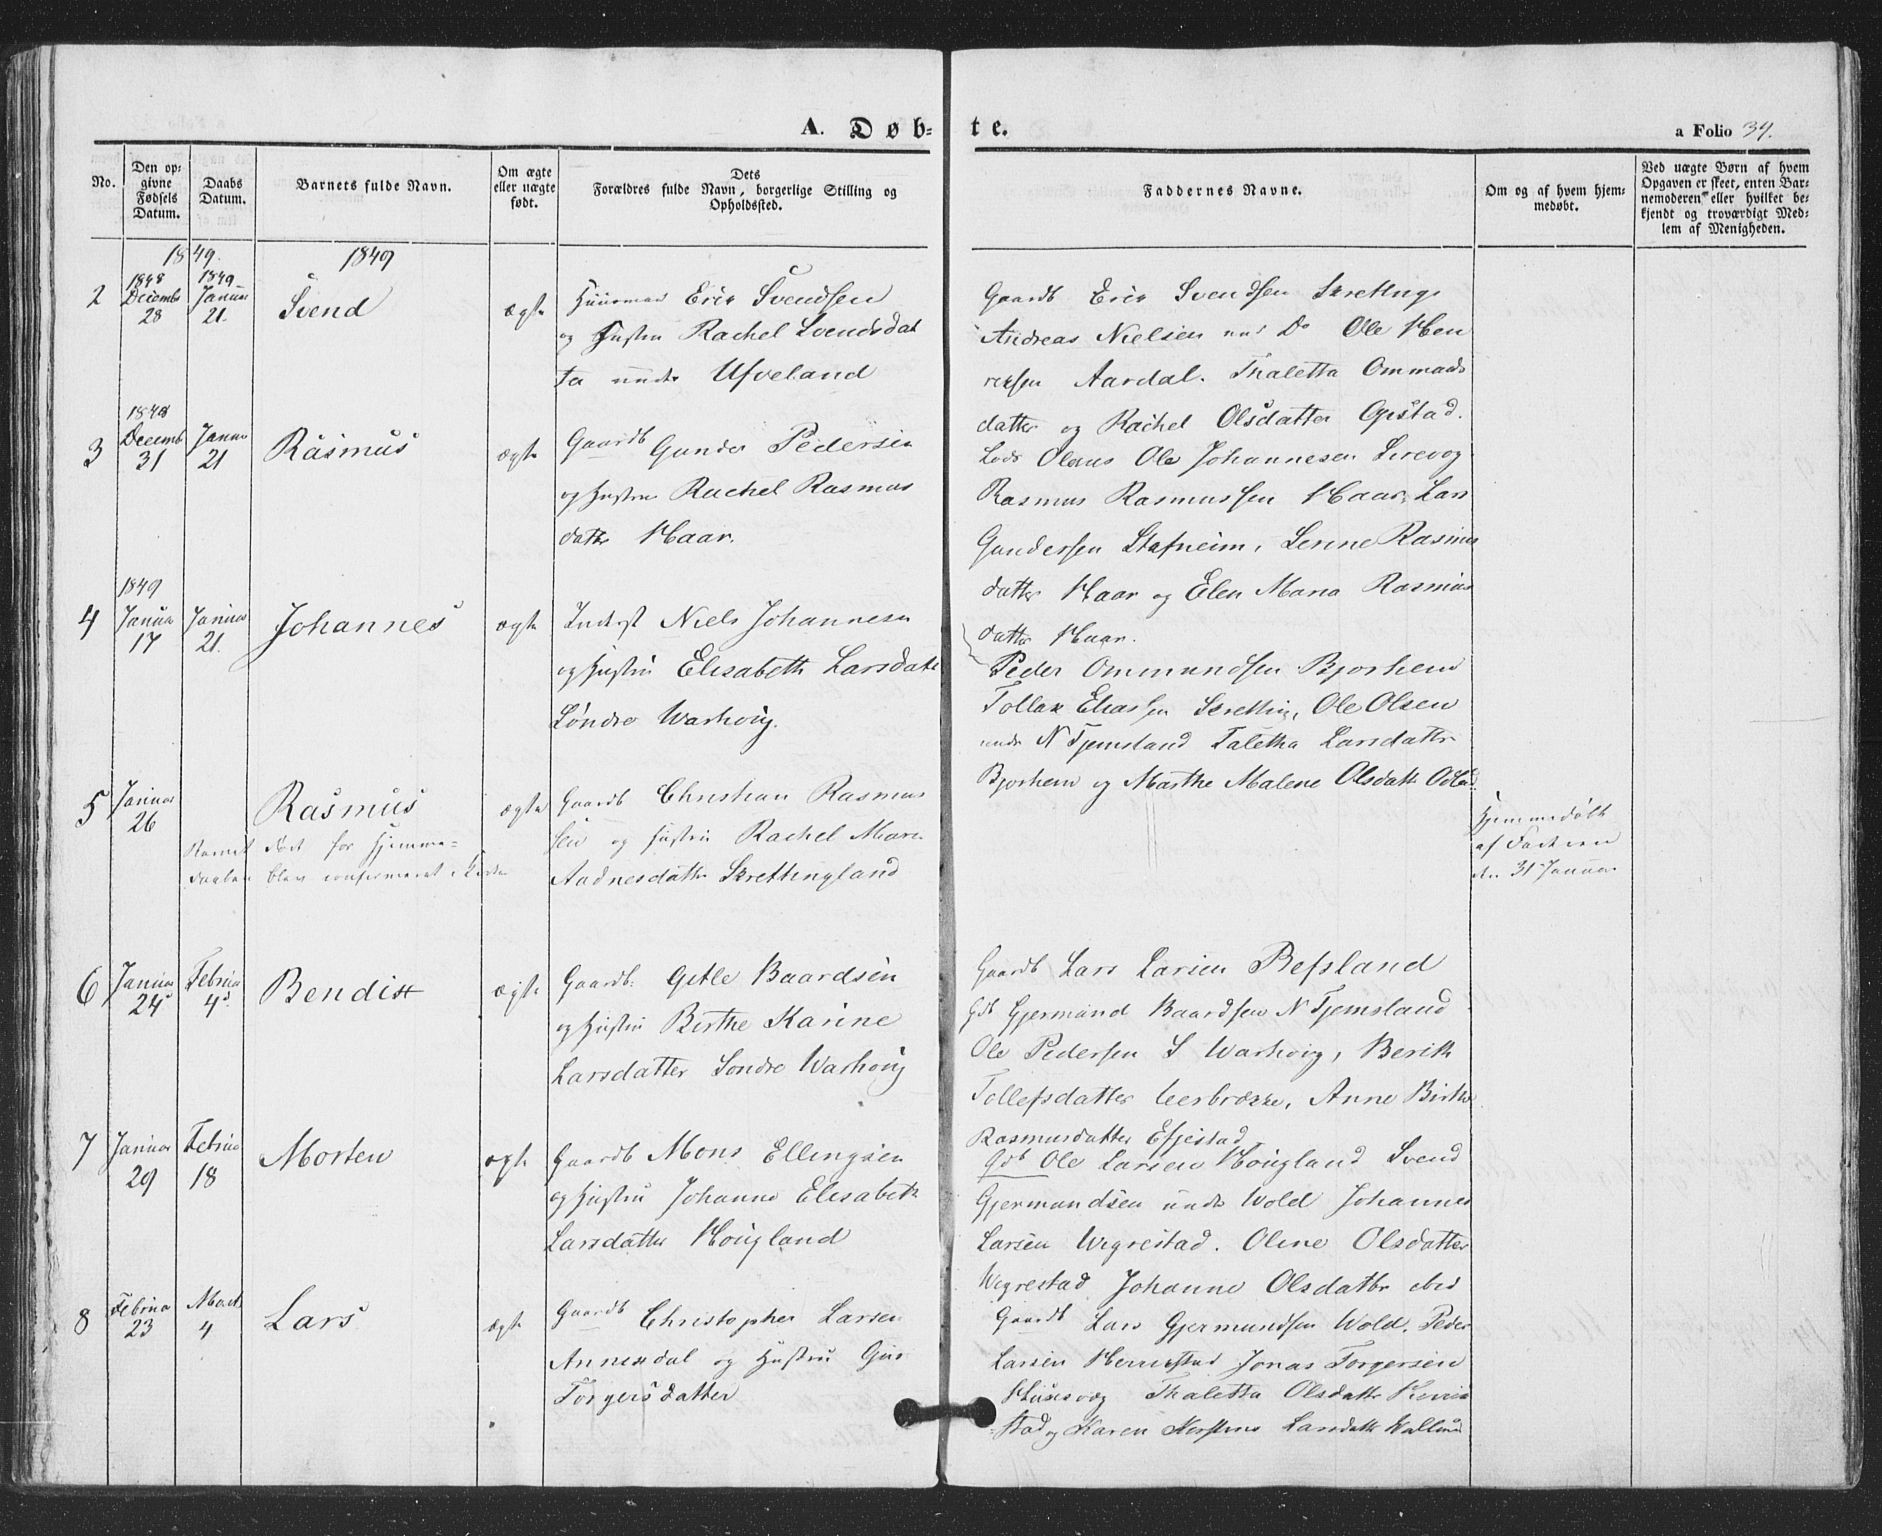 A. Døb-
te.
a Folio 39.
No.
Den op-
givne
Fødsels
Datum.
Daabs
Datum.
Barnets fulde Navn.
Om ægte
eller uægte
født.
Dets
Forældres fulde Navn, borgerlige Stilling og
Opholdssted.
Faddernes Navne.
Om og af hvem hjem-
medøbt.
Ved uægte Børn af hvem
Opgaven er skeet, enten Bar-
nemoderen eller hvilket be-
kjendt og troværdigt Med-
lem af Menigheden.
1849.
1849
2
1848
Decemb
28
1849
Januar
21.
Svend
ægte
Huusmand Eric Svendsen
og Hustru Rachel Svendsdat
ter under Ufveland
Gaardb Eric Svendsen Skretting
Andreas Nielsen und Do Ole Hen
riksen Aardal. Thaletta Ommunds
datter og Rachel Olsdatter Opstad.
3
1848
Decemb
31
Januar
21
Rasmus
ægte
Gaardb Gunder Pedersen
og Hustru Rachel Rasmus
datter Haar.
Lods Olaus Ole Johannesen Sirevog
Rasmus Rasmussen Haar, Lars
Gundersen Stafneim, Serine Rasmus
datter Haar og Elen Maria Rasmus
datter Haar.
4
1849
Januar
17
Januar
21.
Johannes
ægte
Inderst Niels Johannesen
og Hustru Elisabeth Larsdatt
Søndre Warhoug.
Peder Ommundsen Bjorhem
Tollax Eliassen Skretting, Ole Olsen
under N Tjemsland Taletha Larsdatter
Bjorhem og Marthe Malene Olsdatt
5
Januar
26
Rasmus
ægte
Gaardb Christian Rasmus
sen og Hustru Rachel Mari
Aadnesdatter Skrettingland
Hjemmedøbt
af Faderen
den 31 Januar
Barnet død før Hjemme-
daaben blev confirmeret i Kirke
6
Januar
24
Februar
4
Bendix
ægte
Gaardb: Gitle Baardsen
og Hustru Birthe Karine
Larsdatter Søndre Warhoug
Gaardb Lars Larsen Refsland
Gdb Gjermund Baardsen N Tjemsland
Ole Pedersen S Warhoug, Berith
Tollefsdatter Leerbrekke, Anne Birthe
Rasmusdatter Efjestad
7
Januar
29
Februar
18
Morten
ægte
Gaardb Mons Ellingsen
og Hustru Johanne Elisabeth
Larsdatter Hougland
Gdb Ole Larsen Hougland Svend
Gjermundsen under Wold Johannes
Larsen Wigrestad. Oline Olsdatter
Wigrestad Johanne Olsdatter ibid
8
Februar
23
Marts
4
Lars
ægte
Gaardb Christopher Larsen
Annixdal og Hustru Guri
Torgersdatter
Gaardb Lars Gjermundsen Wold. Peder
Larsen Herrestad Jonas Torgersen
Husevog Thaletta Olsdatter Herrie
stad og Karen Kirstine Larsdatter